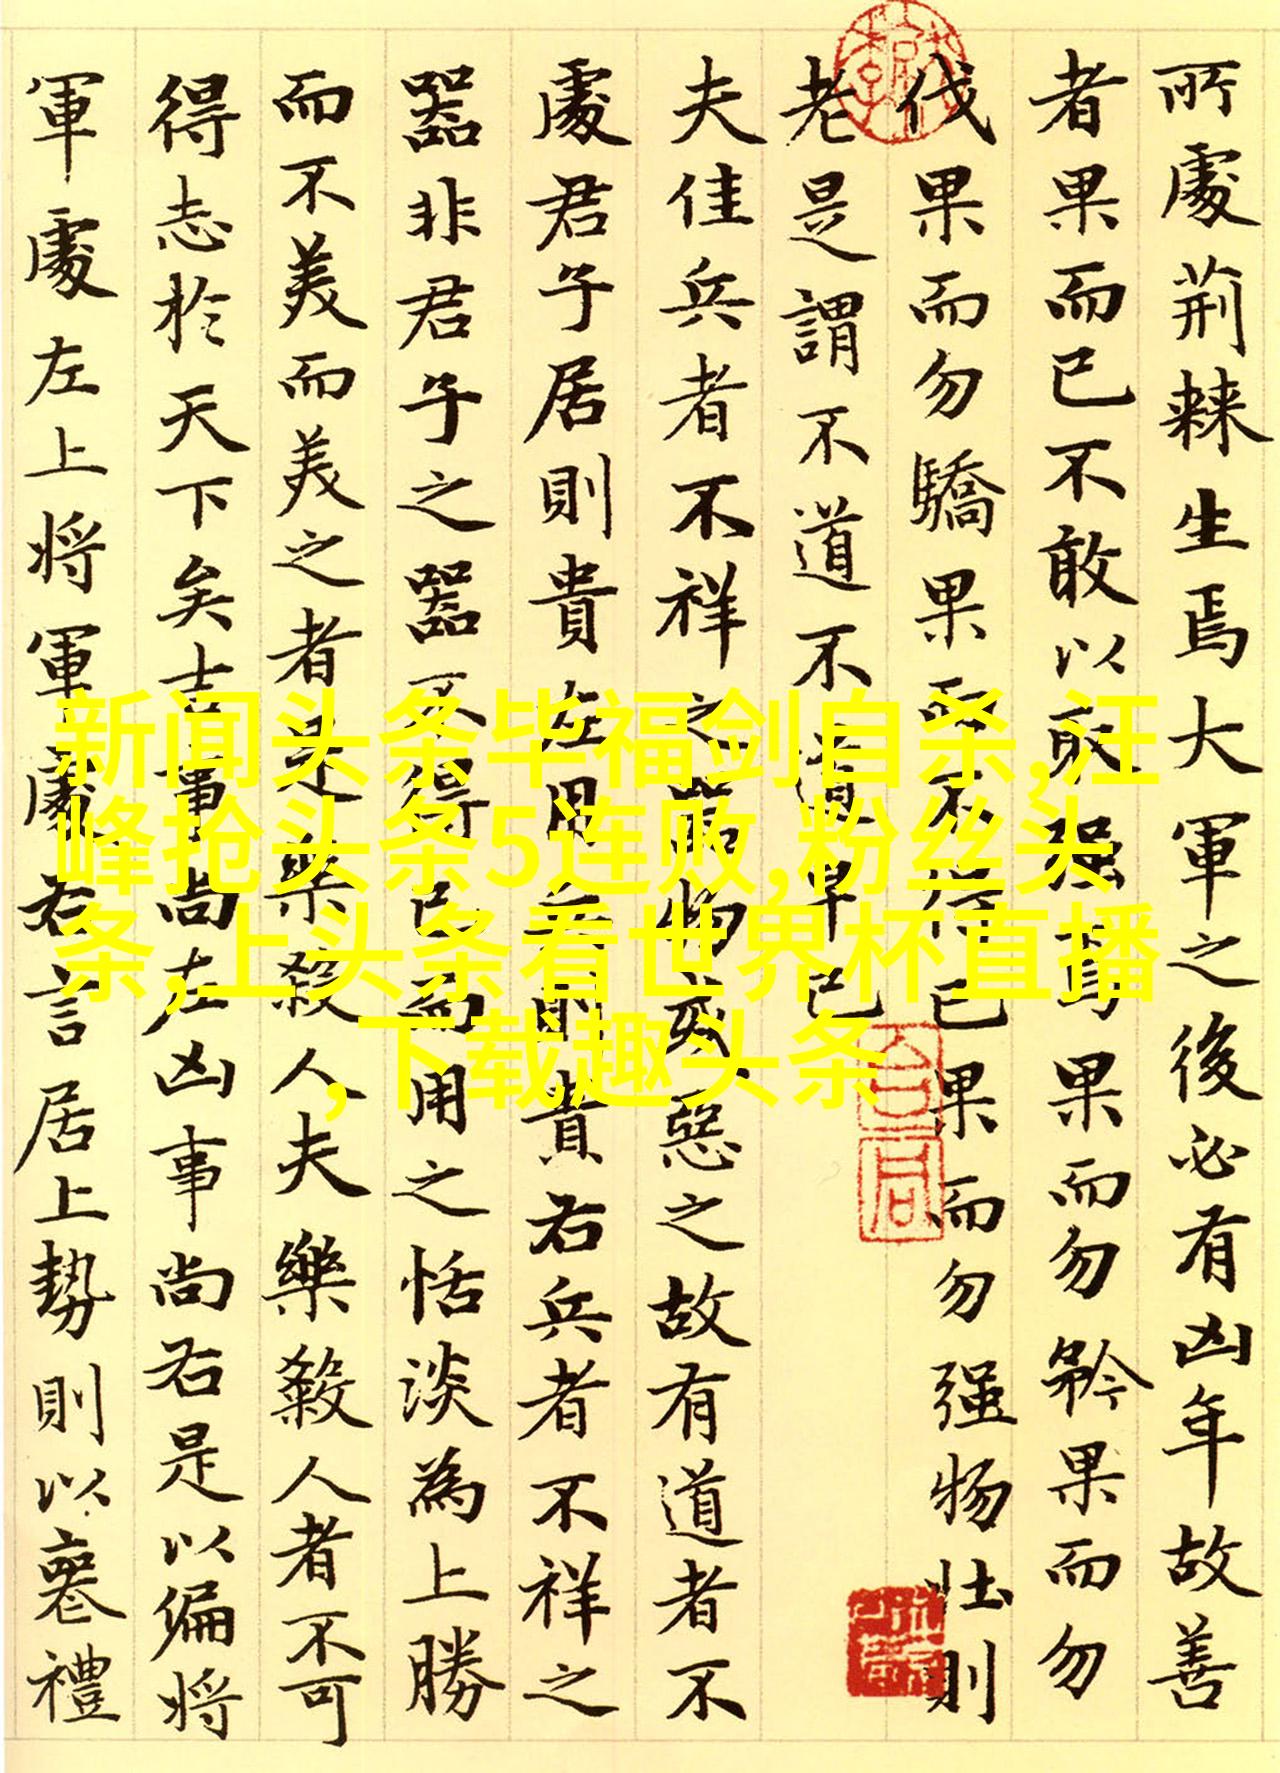 所處荊棘生焉大軍之後必有凶年故善
者果而已不敢以取强焉果而勿矜果而勿
伐果而勿驕果而不得已果而勿强物壮則
老是謂不道不道早已
夫佳兵者不祥之器物或惡之故有道者不
處君子居則貴左用兵則貴右兵者不祥之
器非君子之器不得已而用之恬淡為上勝
而不美而美之者是樂殺人夫樂殺人者不可
得志於天下矣吉事尚左凶事尚右是以偏將
軍處左上将軍處右言居上勢則以喪禮
新闻头条毕福剑自杀,汪
峰抢头条5连败,粉丝头
条,上头条看世界杯直播
,下载趣头条